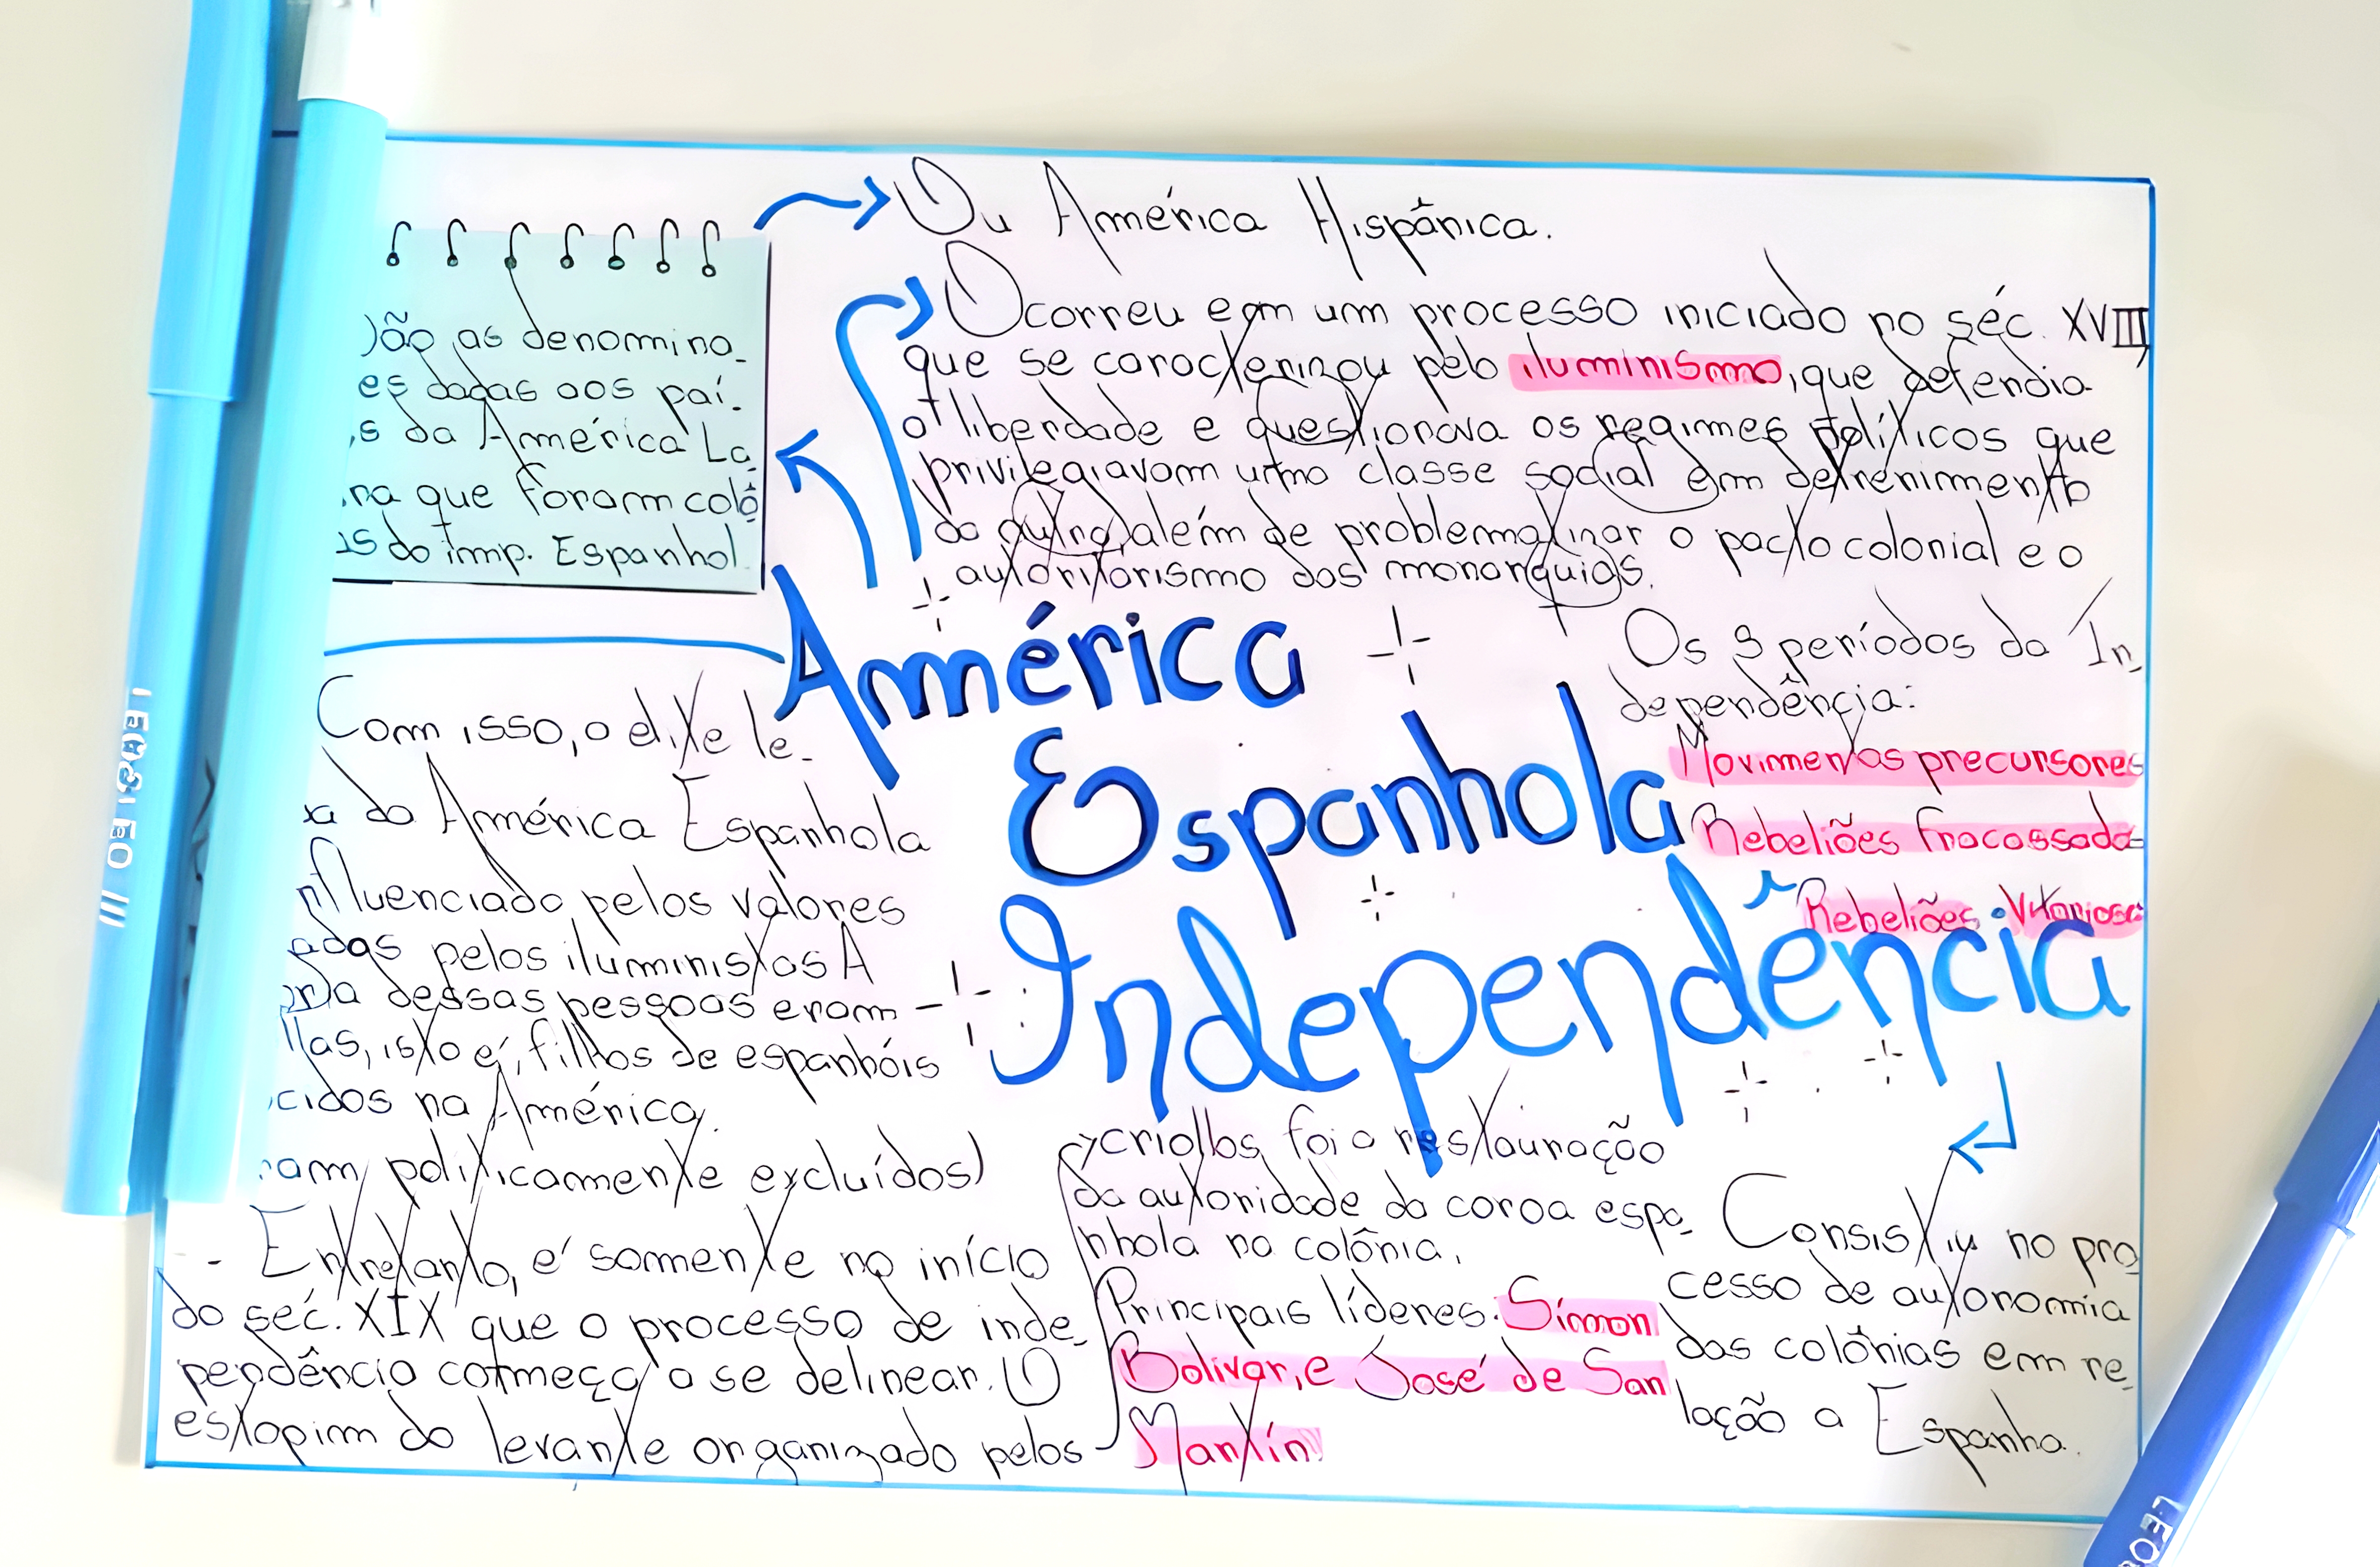 Ou América Hispânica.
Ocorreu em um processo iniciado no séc. XVIII,
que se caracterizou pelo iluminismo, que defendia
a liberdade e questionava os regimes políticos que
privilegiavam uma classe social em detrenimento
da outra, além de problematizar o pacto colonial e o
autoritarismo das monarquias.
ão as denomina-
es dadas aos paí-
s da América La-
na que foram colô
as do imp. Espanhol.
América
Espanhola
Independência
Os 3 períodos da In-
dependência:
Movimentos precursores
Rebeliões fracassada
Rebeliões Vitoriosa
Com isso, o elite le-
va da América Espanhola
influenciado pelos valores
adas pelos iluministas A
oria dessas pessoas eram
llas, isto é, filhos de espanhóis
cidos na América.
ram politicamente excluídos)
- Entretanto, é somente no início
do séc. XIX que o processo de inde-
pendência começa a se delinear. O
estopim do levante organizado pelos
criollos foi a restauração
da autoridade da coroa espa-
nhola na colônia.
Principais líderes: Símon
Bolivar, e José de San
Martín
Consistiu no pro-
cesso de autonomia
das colônias em re-
lação a Espanha.